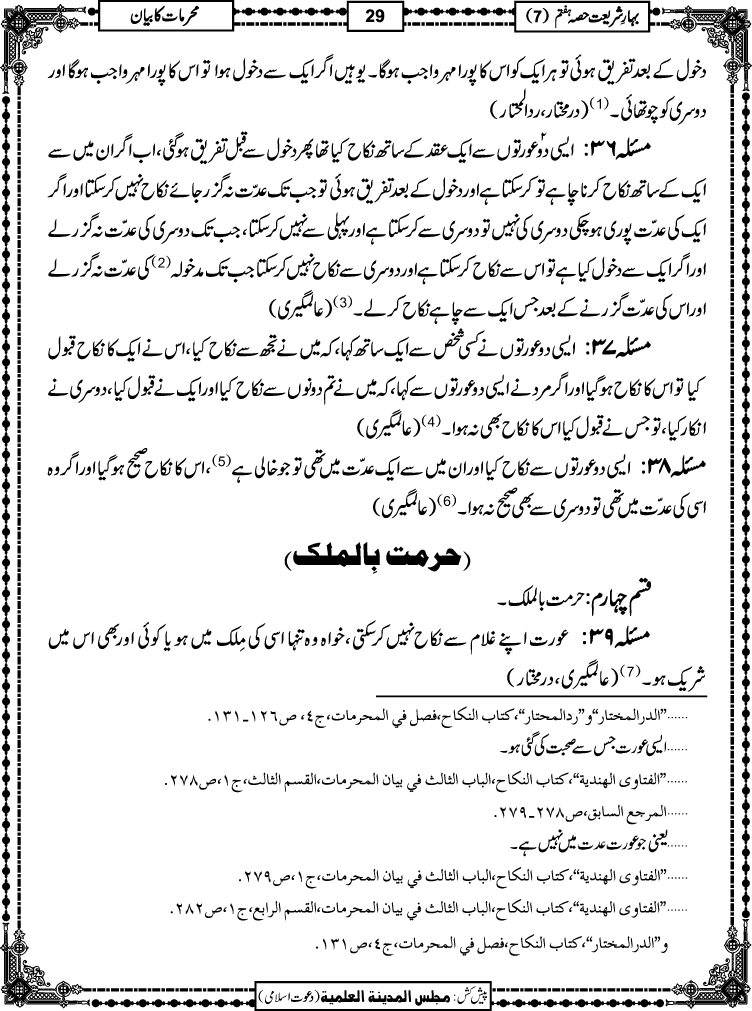 بہارِ شریعت حصہ ہفتم (7)
29
محرمات کا بیان
دخول کے بعد تفریق ہوئی تو ہر ایک کو اس کا پورا مہر واجب ہوگا۔ یوہیں اگر ایک سے دخول ہوا تو اس کا پورا مہر واجب ہوگا اور
دوسری کو چوتھائی۔(1) (درمختار، ردالمحتار)
مسئلہ ۳۶: ایسی دو۲ عورتوں سے ایک عقد کے ساتھ نکاح کیا تھا پھر دخول سے قبل تفریق ہوگئی، اب اگر ان میں سے
ایک کے ساتھ نکاح کرنا چاہے تو کرسکتا ہے اور دخول کے بعد تفریق ہوئی تو جب تک عدّت نہ گزر جائے نکاح نہیں کرسکتا اور اگر
ایک کی عدّت پوری ہوچکی دوسری کی نہیں تو دوسری سے کرسکتا ہے اور پہلی سے نہیں کرسکتا، جب تک دوسری کی عدّت نہ گزر لے
اور اگر ایک سے دخول کیا ہے تو اس سے نکاح کرسکتا ہے اور دوسری سے نکاح نہیں کرسکتا جب تک مدخولہ(2) کی عدّت نہ گزر لے
اور اس کی عدّت گزرنے کے بعد جس ایک سے چاہے نکاح کرلے۔(3) (عالمگیری)
مسئلہ ۳۷: ایسی دو عورتوں نے کسی شخص سے ایک ساتھ کہا، کہ میں نے تجھ سے نکاح کیا، اس نے ایک کا نکاح قبول
کیا تو اس کا نکاح ہوگیا اور اگر مرد نے ایسی دو عورتوں سے کہا، کہ میں نے تم دونوں سے نکاح کیا اور ایک نے قبول کیا، دوسری نے
انکار کیا، تو جس نے قبول کیا اس کا نکاح بھی نہ ہوا۔(4) (عالمگیری)
مسئلہ ۳۸: ایسی دو عورتوں سے نکاح کیا اور ان میں سے ایک عدّت میں تھی تو جو خالی ہے(5)، اس کا نکاح صحیح ہوگیا اور اگر وہ
اسی کی عدّت میں تھی تو دوسری سے بھی صحیح نہ ہوا۔(6) (عالمگیری)
(حرمت بِالملک)
قسم چہارم: حرمت بالملک۔
مسئلہ ۳۹: عورت اپنے غلام سے نکاح نہیں کرسکتی، خواہ وہ تنہا اسی کی مِلک میں ہو یا کوئی اور بھی اس میں
شریک ہو۔(7) (عالمگیری، درمختار)
......"الدرالمختار" و "ردالمحتار"، کتاب النکاح، فصل في المحرمات، ج٤، ص١٢٦۔١٣١.
......ایسی عورت جس سے صحبت کی گئی ہو۔
......"الفتاوی الھندیة"، کتاب النکاح، الباب الثالث في بیان المحرمات، القسم الثالث، ج١، ص٢٧٨.
......المرجع السابق، ص٢٧٨۔٢٧٩.
......یعنی جو عورت عدت میں نہیں ہے۔
......"الفتاوی الھندیة"، کتاب النکاح، الباب الثالث في بیان المحرمات، ج١، ص٢٧٩.
......"الفتاوی الھندیة"، کتاب النکاح، الباب الثالث في بیان المحرمات، القسم الرابع، ج١، ص٢٨٢.
و "الدرالمختار"، کتاب النکاح، فصل في المحرمات، ج٤، ص١٣١.
پیش کش: مجلس المدینة العلمیة (دعوت اسلامی)